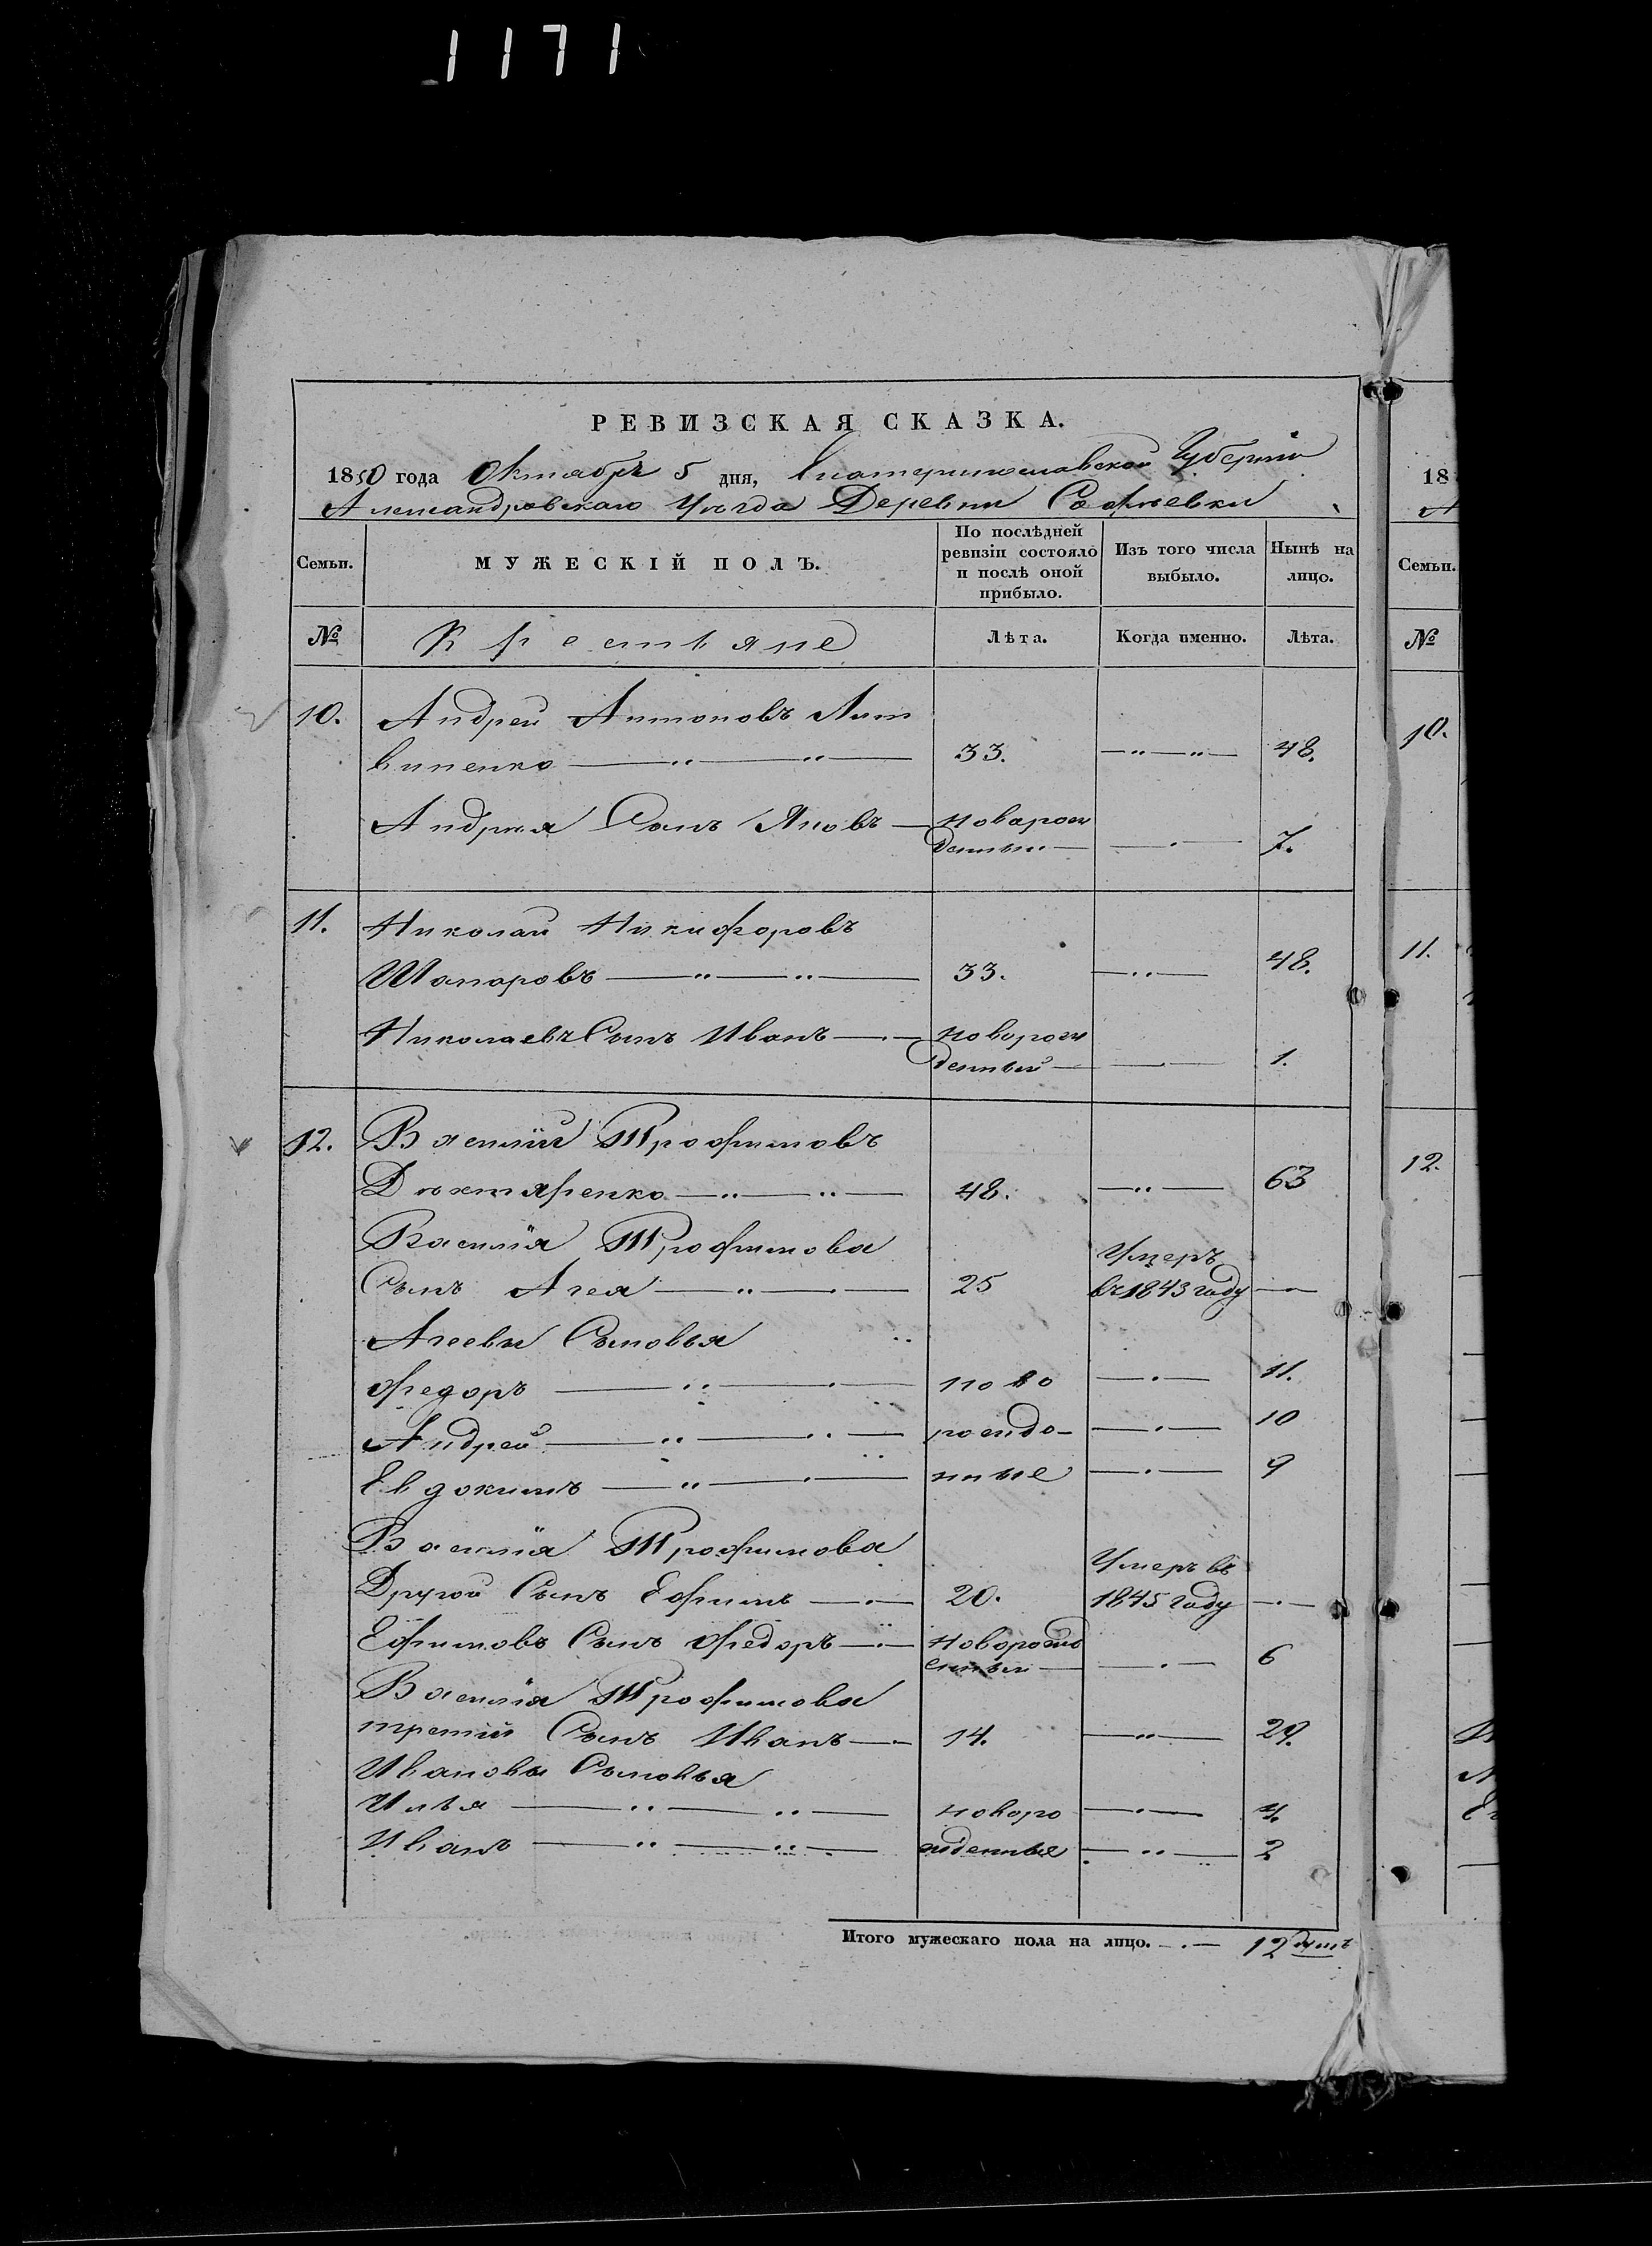 1171
РЕВИЗСКАЯ СКАЗКА.
1850 года Октября 5 дня, Екатеринославской Губерніи
Александровскаго Уѣзда Деревни Софіевки
18
Семьи.
МУЖЕСКІЙ ПОЛЪ.
По послѣдней ревизіи состояло и послѣ оной прибыло.
Изъ того числа выбыло.
Нынѣ на лицо.
Семьи.
№ Крестьяне Лѣта. Когда именно. Лѣта. №
10. Андрей Антоновъ Лит
виненко 33. 48. 10.
Андрея Сынъ Яковъ новорож
денный 7.
11. Николай Никифоровъ
Шапаровъ 33. 48. 11.
Николаевъ Сынъ Иванъ новорож
денный 1.
12. Василій Трофимовъ
Дѣхтяренко 48. 63 12.
Василія Трофимова Умеръ
Сынъ Агея 25 въ 1843 году
Агеевы Сыновья
Федоръ ново 11.
Андрей рождо- 10
Евдокимъ нные 9
Василія Трофимова Умеръ въ
Другой Сынъ Ефимъ 20. 1845 году
Ефимовъ Сынъ Федоръ новорожд
енный 6
Василія Трофимова
третій Сынъ Иванъ 14. 29.
Ивановы Сыновья
Илья новоро 4.
Иванъ жденные 2
Итого мужескаго пола на лицо. 12 душъ